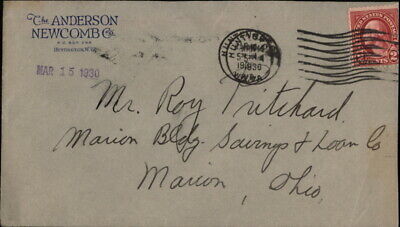 The ANDERSON
NEWCOMB Co.
P.O. BOX
HUNTINGTON, W.VA.
MAR 15 1930
1930
W.VA.
Mr. Roy Pritchard
Marion Bldg. Savings & Loan Co
Marion, Ohio,